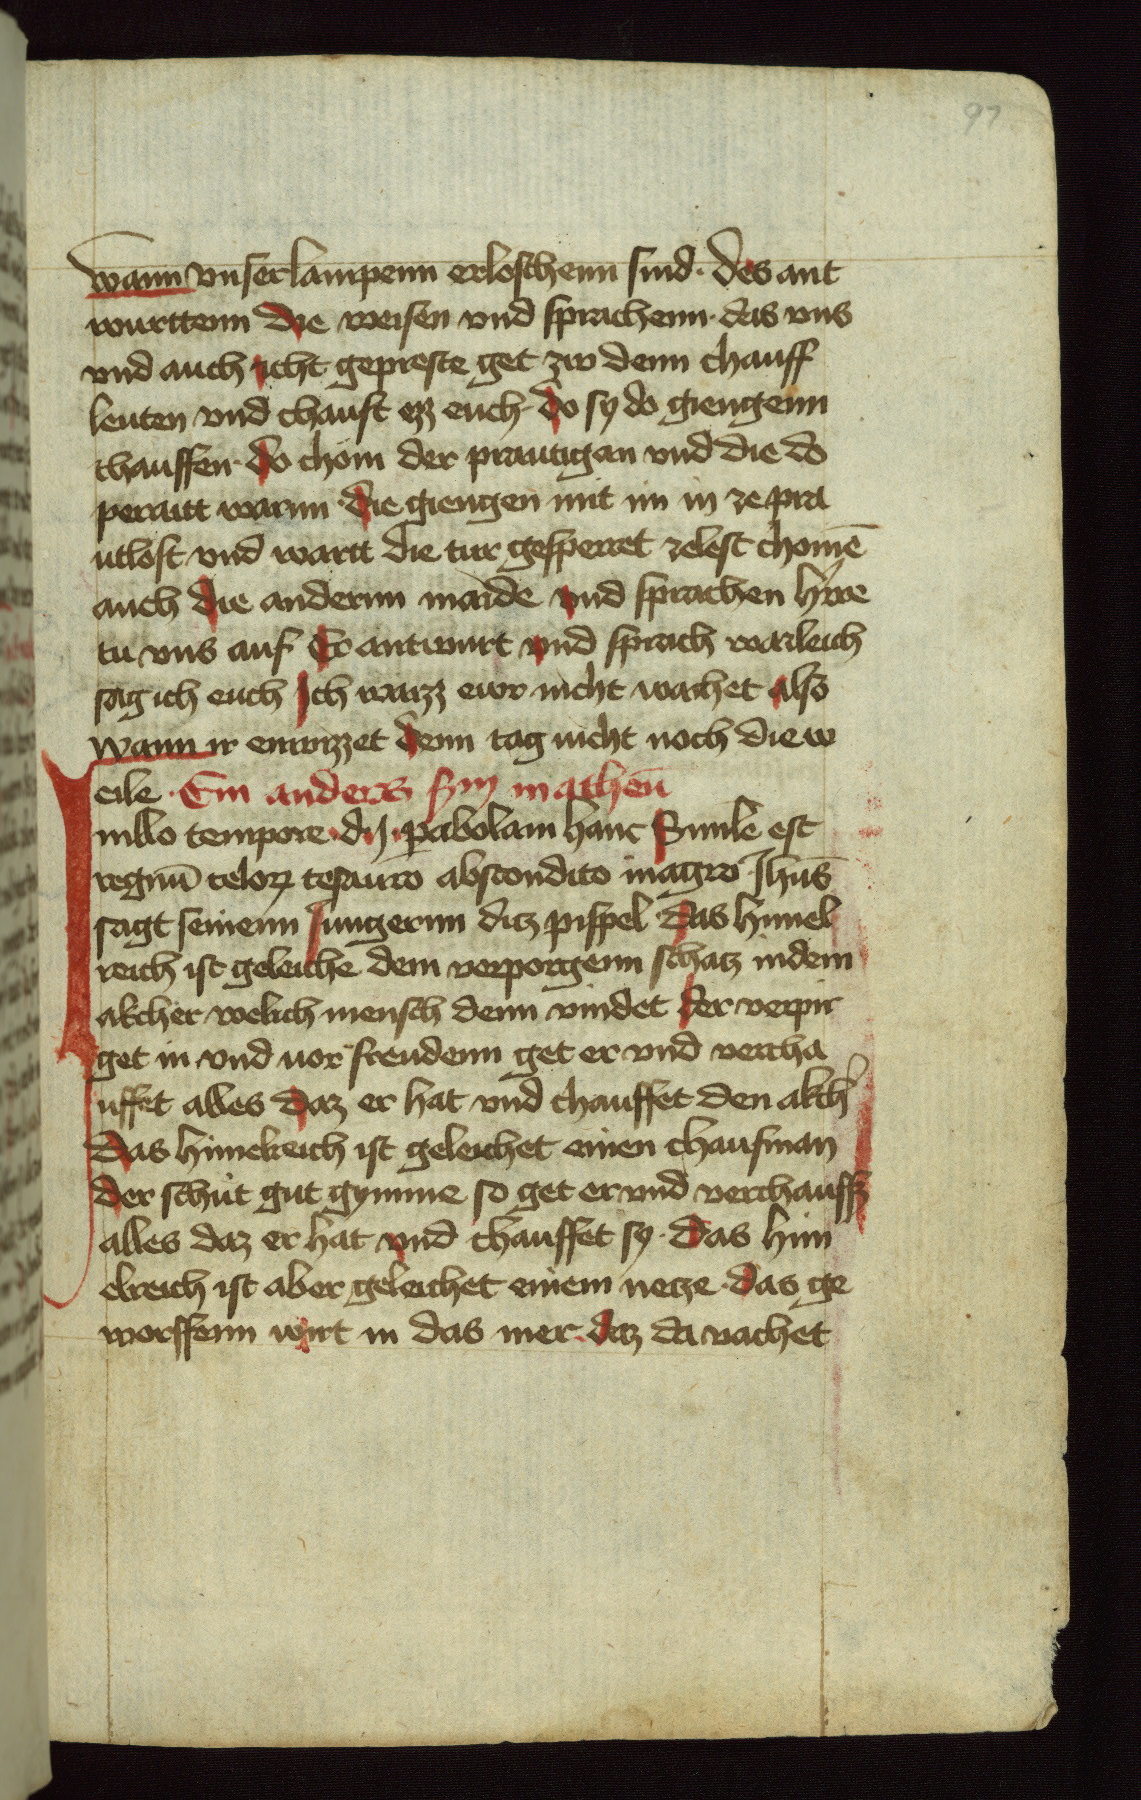 97
wann vnser lampenn erloschenn sind · des ant
wurttenn Die weisen vnd sprachenn · das vns
vnd auch icht gepreste get zw denn chauff
leuten vnd chauft ezz euch · do sy do giengenn
chauffen · do chom der prautigan vnd die do
peraitt warnn · die giengen mit im in ze pra
utloft vnd wartt die tur gesperret zelest chomē
auch die andernn maide vnd sprachen h're
tu vns auf Er antwurt vnd sprach warleich
sag ich euch Ich waizz ewr nicht wachet also
wann ir enwizzet denn tag nicht noch die w
eile · Ein anders secundum matheū
In illo tempore · dn̄ · pabolam hanc Simile est
regnū celorꝝ tesauro abscondito in agro Ihūs
sagt seinenn Jungernn ditz pispel Das himel
reich ist geleiche dem verporgenn schatz in dem
akcher welich mensch denn vindet der verpir
get in vnd uor freudenn get er vnd vercha
uffet alles daz er hat vnd chauffet den akch'
Das himelreich ist geleichet einen chaufman
Der schut gut gymme so get er vnd verchauff
alles daz er hat vnd chauffet sy · Das him
elreich ist aber geleichet einem netze · das ge
worffenn wirt in das mer · daz da vachet